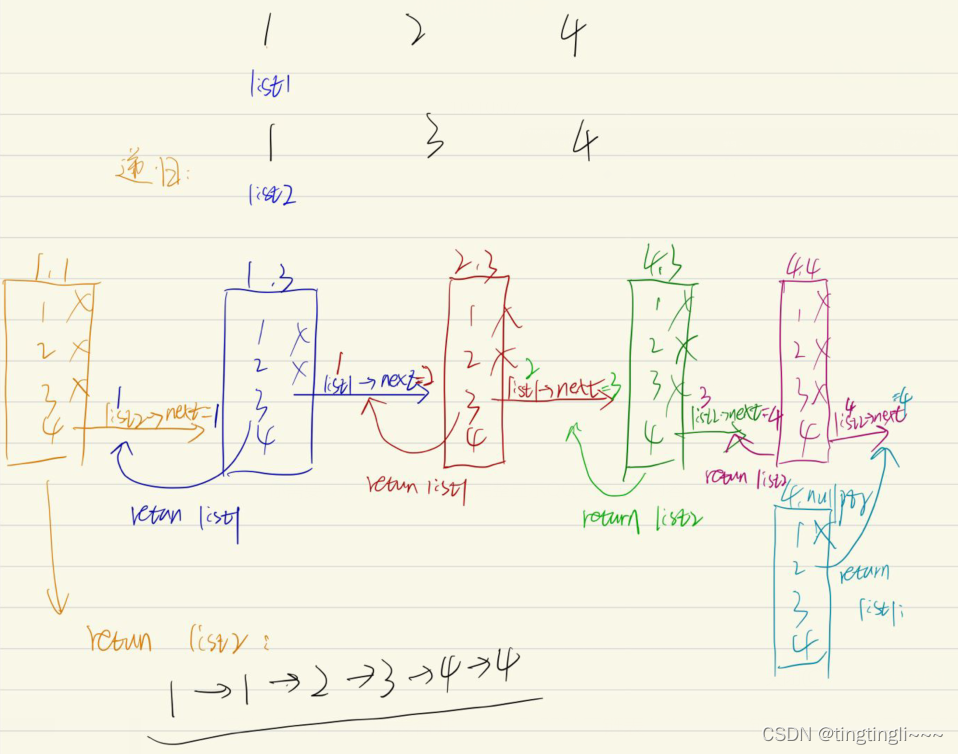 1 2 4
list1
1 3 4
递归:
list2
1.1
1 X
2 X
3 X
4
1
list2→next=1
1.3
1 X
2 X
3
4
1
list1→next=2
retun list1
2.3
1 X
2 X
3
4
2
list1→next=3
retun list1
4.3
1 X
2 X
3 X
4
3
list2→next=4
return list2
4.4
1 X
2 X
3 X
4
4
list2→next=4
retun list2
4.nullptr
1 X
2
3
4
return
list1;
retun list2;
1→1→2→3→4→4
CSDN @tingtingli~~~